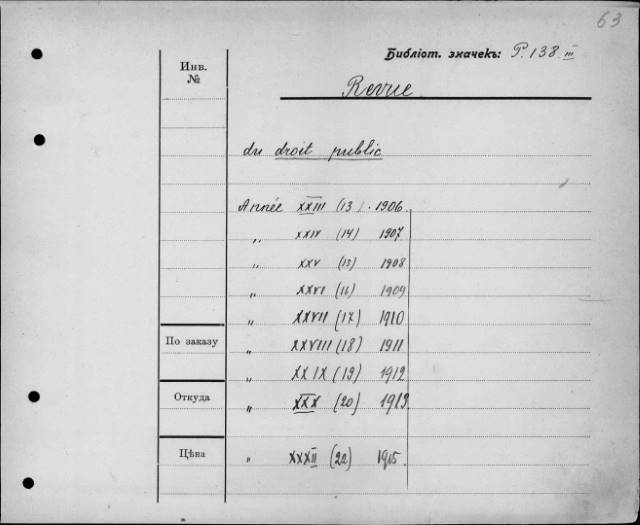 63
Библіот. значекъ: P. 138 III
Инв. №
Revue
du droit public
Année XXIII (13). 1906
„ XXIV (14) 1907
„ XXV (15) 1908
„ XXVI (16) 1909
„ XXVII (17) 1910
По заказу
„ XXVIII (18) 1911
„ XXIX (19) 1912
Откуда
„ XXX (20) 1913
Цѣна
„ XXXII (22) 1915